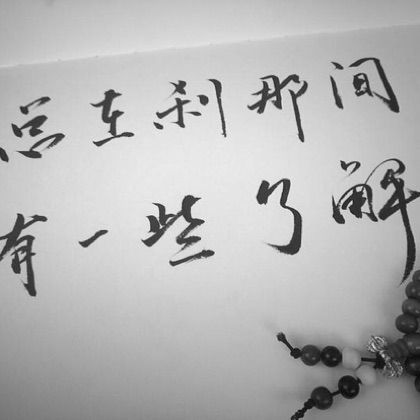 总在刹那间
有一些了解